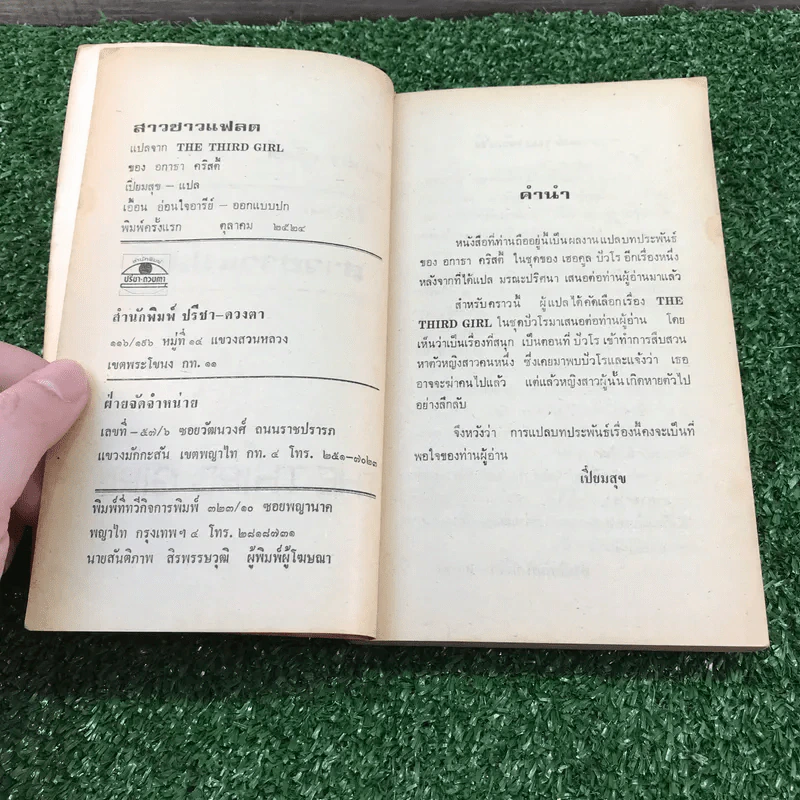 สาวชาวแฟลต
แปลจาก THE THIRD GIRL
ของ อกาธา คริสตี้
เปี่ยมสุข — แปล
เอื้อน อ่อนใจอารีย์ - ออกแบบปก
พิมพ์ครั้งแรก ตุลาคม ๒๕๒๔
สำนักพิมพ์
ปรีชา-ดวงตา
สำนักพิมพ์ ปรีชา-ดวงตา
๑๑๖/๑๙๖ หมู่ที่ ๑๔ แขวงสวนหลวง
เขตพระโขนง กท. ๑๑
ฝ่ายจัดจำหน่าย
เลขที่ -๕๗/๖ ซอยวัฒนวงศ์ ถนนราชปรารภ
แขวงมักกะสัน เขตพญาไท กท. ๔ โทร. ๒๕๑-๗๐๒๓
พิมพ์ที่ทวีกิจการพิมพ์ ๓๒๓/๑๐ ซอยพญานาค
พญาไท กรุงเทพฯ ๔ โทร. ๒๘๑๘๗๓๑
นายสันติภาพ สิรพรรษวุฒิ ผู้พิมพ์ผู้โฆษณา
คำนำ
หนังสือที่ท่านถืออยู่นี้เป็นผลงานแปลบทประพันธ์
ของ อกาธา คริสตี้ ในชุดของ เฮอคูล ปัวโร อีกเรื่องหนึ่ง
หลังจากที่ได้แปล มรณะปริศนา เสนอต่อท่านผู้อ่านมาแล้ว
สำหรับคราวนี้ ผู้แปลได้คัดเลือกเรื่อง THE
THIRD GIRL ในชุดปัวโรมาเสนอต่อท่านผู้อ่าน โดย
เห็นว่าเป็นเรื่องที่สนุก เป็นตอนที่ ปัวโร เข้าทำการสืบสวน
หาตัวหญิงสาวคนหนึ่ง ซึ่งเคยมาพบปัวโรและแจ้งว่า เธอ
อาจจะฆ่าคนไปแล้ว แต่แล้วหญิงสาวผู้นั้นเกิดหายตัวไป
อย่างลึกลับ
จึงหวังว่า การแปลบทประพันธ์เรื่องนี้คงจะเป็นที่
พอใจของท่านผู้อ่าน
เปี่ยมสุข